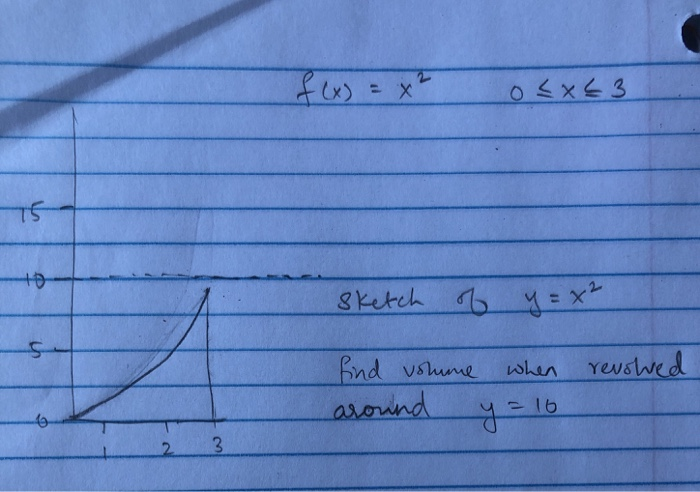 f(x) = x² 0 ≤ x ≤ 3
15
10
5
0
1 2 3
Sketch of y = x²
find volume when revolved
around y = 10